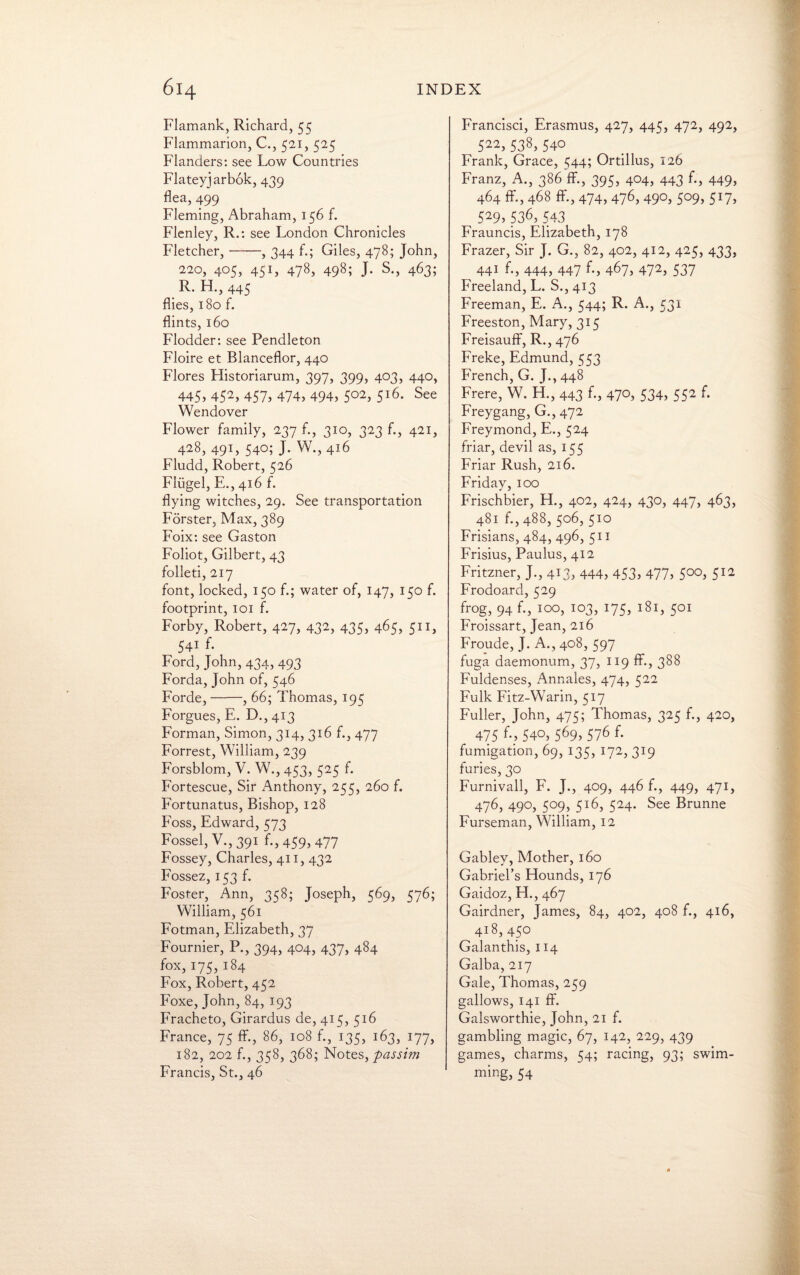 614 INDEX
Flamank, Richard, 55
Flammarion, C., 521, 525
Flanders: see Low Countries
Flateyjarbók, 439
flea, 499
Fleming, Abraham, 156 f.
Flenley, R.: see London Chronicles
Fletcher, ——, 344 f.; Giles, 478; John,
220, 405, 451, 478, 498; J. S., 463;
R. H., 445
flies, 180 f.
flints, 160
Flodder: see Pendleton
Floire et Blanceflor, 440
Flores Historiarum, 397, 399, 403, 440,
445, 452, 457, 474, 494, 502, 516. See
Wendover
Flower family, 237 f., 310, 323 f., 421,
428, 491, 540; J. W., 416
Fludd, Robert, 526
Flügel, E., 416 f.
flying witches, 29. See transportation
Förster, Max, 389
Foix: see Gaston
Foliot, Gilbert, 43
folleti, 217
font, locked, 150 f.; water of, 147, 150 f.
footprint, 101 f.
Forby, Robert, 427, 432, 435, 465, 511,
541 f.
Ford, John, 434, 493
Forda, John of, 546
Forde, ——, 66; Thomas, 195
Forgues, E. D., 413
Forman, Simon, 314, 316 f., 477
Forrest, William, 239
Forsblom, V. W., 453, 525 f.
Fortescue, Sir Anthony, 255, 260 f.
Fortunatus, Bishop, 128
Foss, Edward, 573
Fossel, V., 391 f., 459, 477
Fossey, Charles, 411, 432
Fossez, 153 f.
Foster, Ann, 358; Joseph, 569, 576;
William, 561
Fotman, Elizabeth, 37
Fournier, P., 394, 404, 437, 484
fox, 175, 184
Fox, Robert, 452
Foxe, John, 84, 193
Fracheto, Girardus de, 415, 516
France, 75 ff., 86, 108 f., 135, 163, 177,
182, 202 f., 358, 368; Notes, passim
Francis, St., 46
Francisci, Erasmus, 427, 445, 472, 492,
522, 538, 540
Frank, Grace, 544; Ortillus, 126
Franz, A., 386 ff., 395, 404, 443 f., 449,
464 ff., 468 ff., 474, 476, 490, 509, 517,
529, 536, 543
Frauncis, Elizabeth, 178
Frazer, Sir J. G., 82, 402, 412, 425, 433,
441 f., 444, 447 f., 467, 472, 537
Freeland, L. S., 413
Freeman, E. A., 544; R. A., 531
Freeston, Mary, 315
Freisauff, R., 476
Freke, Edmund, 553
French, G. J., 448
Frere, W. H., 443 f., 470, 534, 552 f.
Freygang, G., 472
Freymond, E., 524
friar, devil as, 155
Friar Rush, 216.
Friday, 100
Frischbier, H., 402, 424, 430, 447, 463,
481 f., 488, 506, 510
Frisians, 484, 496, 511
Frisius, Paulus, 412
Fritzner, J., 413, 444, 453, 477, 500, 512
Frodoard, 529
frog, 94 f., 100, 103, 175, 181, 501
Froissart, Jean, 216
Froude, J. A., 408, 597
fuga daemonum, 37, 119 ff., 388
Fuldenses, Annales, 474, 522
Fulk Fitz-Warin, 517
Fuller, John, 475; Thomas, 325 f., 420,
475 f., 540, 569, 576 f.
fumigation, 69, 135, 172, 319
furies, 30
Furnivall, F. J., 409, 446 f., 449, 471,
476, 490, 509, 516, 524. See Brunne
Furseman, William, 12
Gabley, Mother, 160
Gabriel's Hounds, 176
Gaidoz, H., 467
Gairdner, James, 84, 402, 408 f., 416,
418, 450
Galanthis, 114
Galba, 217
Gale, Thomas, 259
gallows, 141 ff.
Galsworthie, John, 21 f.
gambling magic, 67, 142, 229, 439
games, charms, 54; racing, 93; swim-
ming, 54